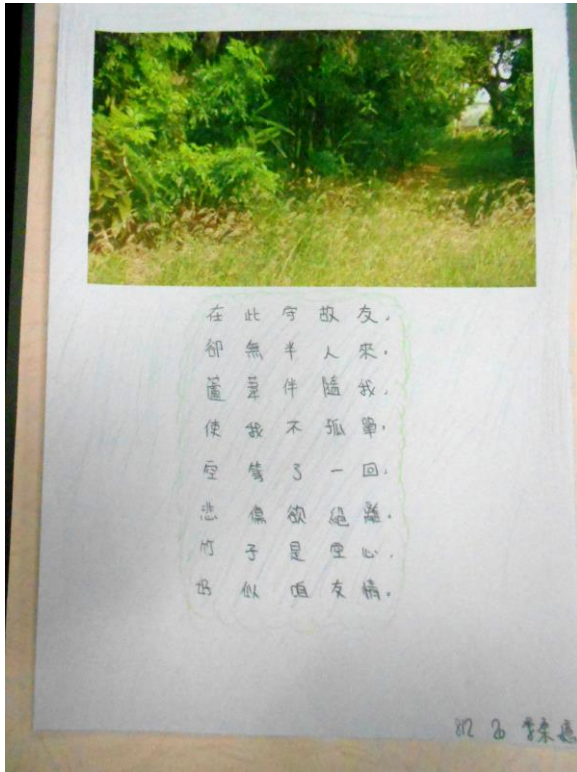 在此守故友，
卻無半人來。
蘆葦伴隨我，
使我不孤單。
空等了一回，
悲傷欲絕離。
竹子是空心，
好似咱友情。
812 26